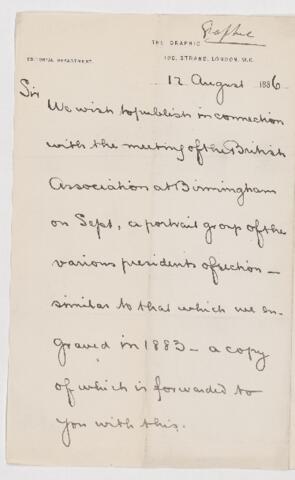 Graphic
THE GRAPHIC
EDITORIAL DEPARTMENT. 190, STRAND, LONDON, W.C.
12 August 1886
Sir
We wish to publish in connection
with the meeting of the British
Association at Birmingham
on Sept, a portrait group of the
various presidents of section —
similar to that which we en-
graved in 1883 — a copy
of which is forwarded to
you with this.